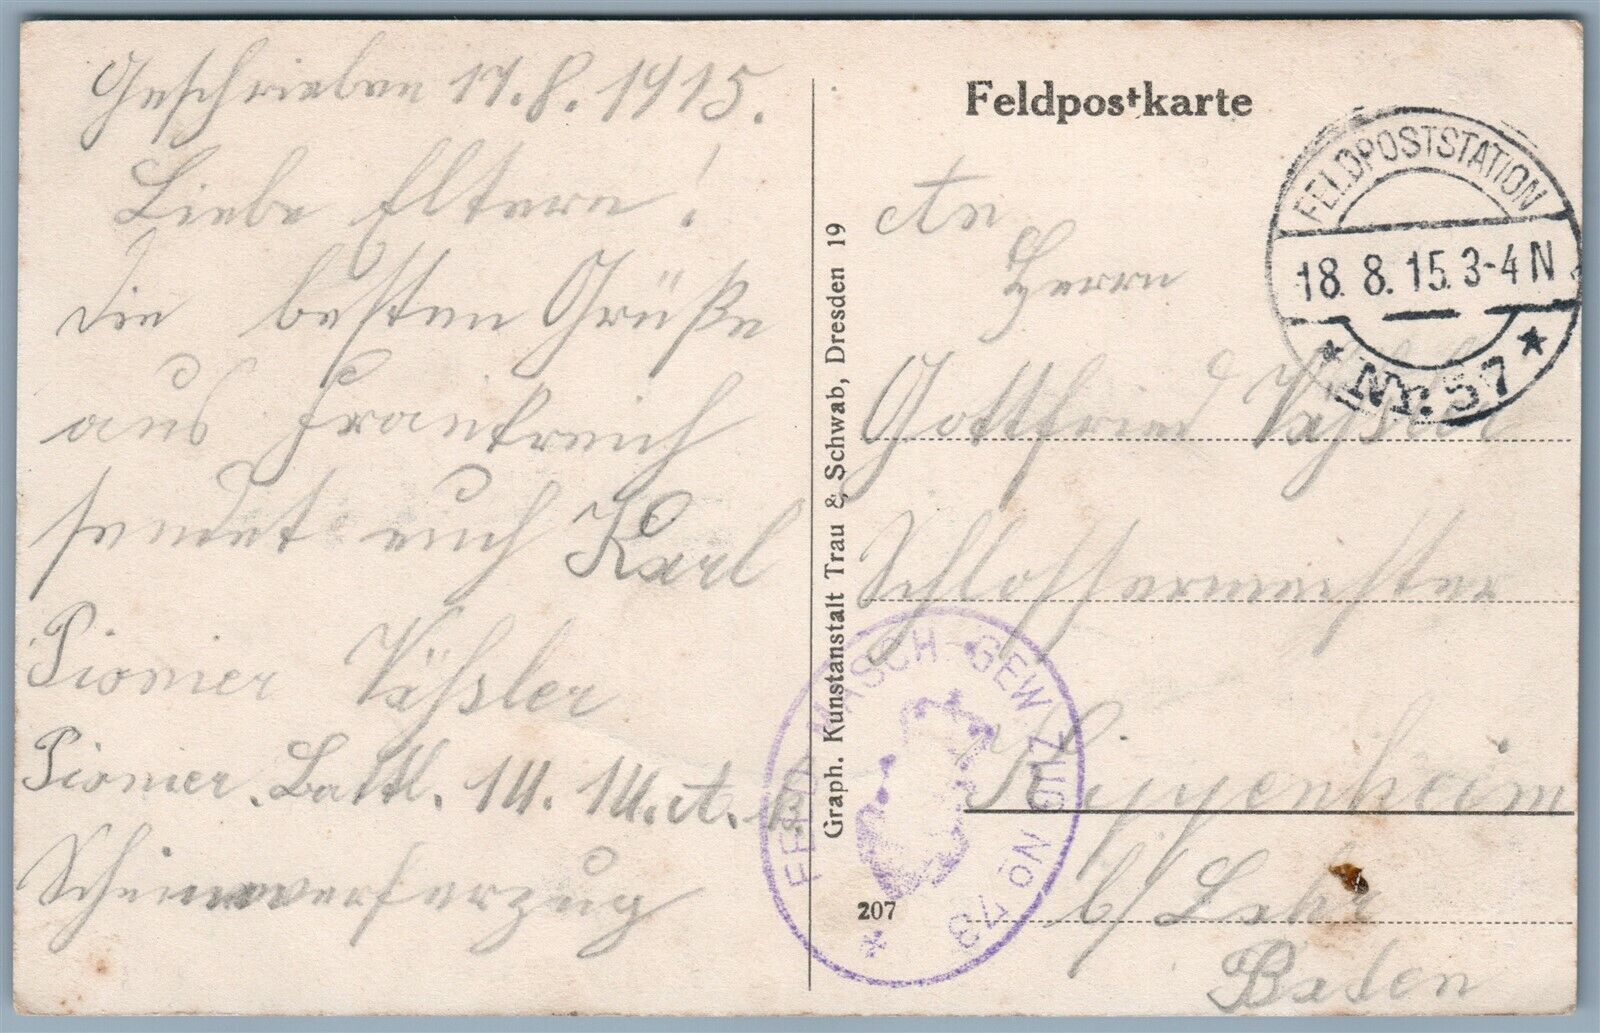 Geschrieben 17.8.1915.
Liebe Eltern!
Die besten Grüße
aus Frankreich
sendet euch Karl
Pionier Väßler
Pionier. Battl. 14. 14. A. K.
Scheinwerferzug
Feldpostkarte
FELDPOSTSTATION
18. 8. 15. 3-4 N
* Nr. 57 *
An
Herrn
Gottfried Väßler
Schlossermeister
Kippenheim
b/ Lahr
Baden
Graph. Kunstanstalt Trau & Schwab, Dresden 19
207
MASCH-GEW ZUG No 73